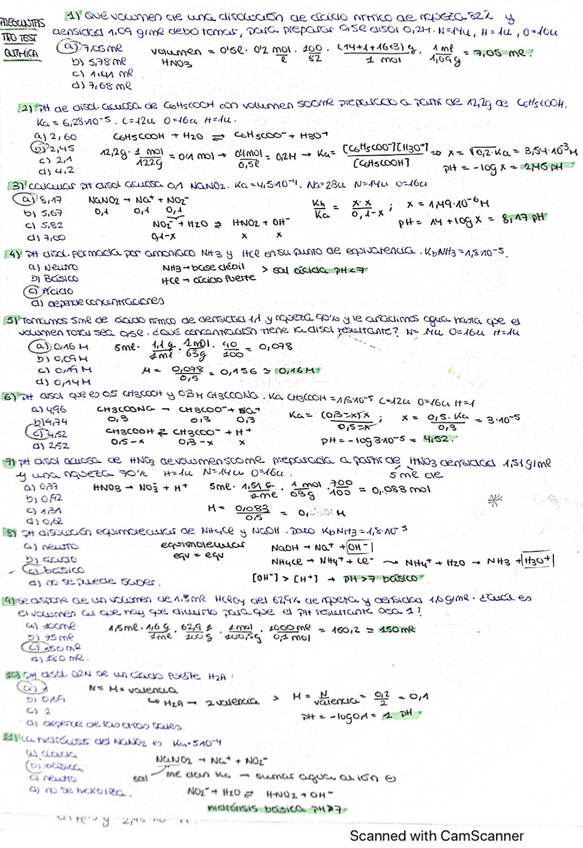 PREGUNTAS TIPO TEST QUÍMICA
1) Qué volumen de una disolución de ácido nítrico de riqueza 82% y
densidad 1,09 g/ml debo tomar, para preparar 0,5l disol 0,2M. N=14u, H=1u, O=16u
a) 7,05 ml
b) 5,78 ml
c) 1,41 ml
d) 7,68 ml
volumen HNO3 = 0,5l · 0,2 mol/l · 100/82 · (14+1+16·3)g/1 mol · 1ml/1,09g = 7,05 ml.
2) pH de disol acuosa de C6H5COOH con volumen 500ml preparado a partir de 12,2g de C6H5COOH.
Ka = 6,28·10^-5. C=12u O=16u H=1u.
a) 2,60
b) 2,45
c) 2,1
d) 4,2
C6H5COOH + H2O ⇌ C6H5COO- + H3O+
12,2g · 1mol/122g = 0,1 mol → 0,1mol/0,5l = 0,2M → Ka = [C6H5COO-][H3O+]/[C6H5COOH] ⇒ x = √0,2·Ka = 3,54·10^-3M
pH = -log x = 2,45 pH
3) Calcular pH disol acuosa 0,1 NaNO2. Ka = 4,5·10^-4. Na=23u N=14u O=16u
a) 8,17
b) 5,67
c) 5,82
d) 7,00
NaNO2 → Na+ + NO2-
0,1 0,1 0,1
NO2- + H2O ⇌ HNO2 + OH-
0,1-x x x
Kh/Ka = x·x/0,1-x ; x = 1,49·10^-6M
pH = 14 + log x = 8,17 pH
4) pH disol. formada por amoniaco NH3 y HCl en su punto de equivalencia. KbNH3 = 1,8·10^-5.
a) Neutro
b) Básico
c) Ácido
d) depende concentraciones
NH3 → base débil
HCl → ácido fuerte > sal ácida pH<7
5) Tomamos 5ml de ácido nítrico de densidad 1,1 y riqueza 90% y le añadimos agua hasta que el
volumen total sea 0,5l. ¿Qué concentración tiene la disol resultante? N=14u O=16u H=1u
a) 0,16 M
b) 0,09 M
c) 0,19 M
d) 0,14 M
5ml · 1,1g/1ml · 1mol/63g · 90/100 = 0,078
M = 0,078/0,5 = 0,156 ≃ 0,16M
6) pH disol que es 0,5 CH3COOH y 0,3M CH3COONa. Ka CH3COOH = 1,8·10^-5 C=12u O=16u H=1
a) 4,96
b) 4,74
c) 4,52
d) 2,52
CH3COONa → CH3COO- + Na+
0,3 0,3 0,3
CH3COOH ⇌ CH3COO- + H+
0,5-x 0,3-x x
Ka = (0,3-x)x/0,5-x ; x = 0,5·Ka/0,3 = 3·10^-5
pH = -log 3·10^-5 = 4,52.
7) pH disol acuosa de HNO3 de volumen 500ml preparada a partir de HNO3 densidad 1,51g/ml
5ml de
y una riqueza 70% H=1u N=14u O=16u.
a) 0,77
b) 0,92
c) 1,31
d) 0,62
HNO3 → NO3- + H+
5ml · 1,51g/1ml · 1mol/63g · 700/100 = 0,083 mol
M = 0,083/0,5 = 0, M
8) pH disolución equimolecular de NH4Cl y NaOH. Dato KbNH3 = 1,8·10^-5
a) neutro
b) ácido
c) básico
d) no se puede saber.
equimolecular
eqv = eqv
NaOH → Na+ + OH-
NH4Cl → NH4+ + Cl- → NH4+ + H2O → NH3 + H3O+
[OH-] > [H+] → pH>7 básico
9) Se dispone de un volumen de 1,5ml HClO4 del 62,9% de riqueza y densidad 1,6g/ml. ¿Cuál es
el volumen al que hay que diluirlo para que el pH resultante sea 1?
a) 100ml
b) 95ml
c) 150ml
d) 180ml.
1,5ml · 1,6g/1ml · 62,9g/100g · 1mol/100,5g · 1000ml/0,1mol = 150,2 ≃ 150ml
10) pH disol 0,2N de un ácido fuerte H2A:
a) 1
b) 0,69
c) 2
d) depende de las otras sales.
N = M × valencia
↳ H2A → 2 valencia > M = N/valencia = 0,2/2 = 0,1
pH = -log 0,1 = 1 pH
11) La hidrólisis del NaNO2 es Ka=5·10^-4
a) ácida
b) básica
c) neutro
d) no se hidroliza.
NaNO2 → Na+ + NO2-
sal me dan Ka → sumar agua al ión ⊖
NO2- + H2O ⇌ HNO2 + OH-
hidrólisis básica pH>7
Scanned with CamScanner